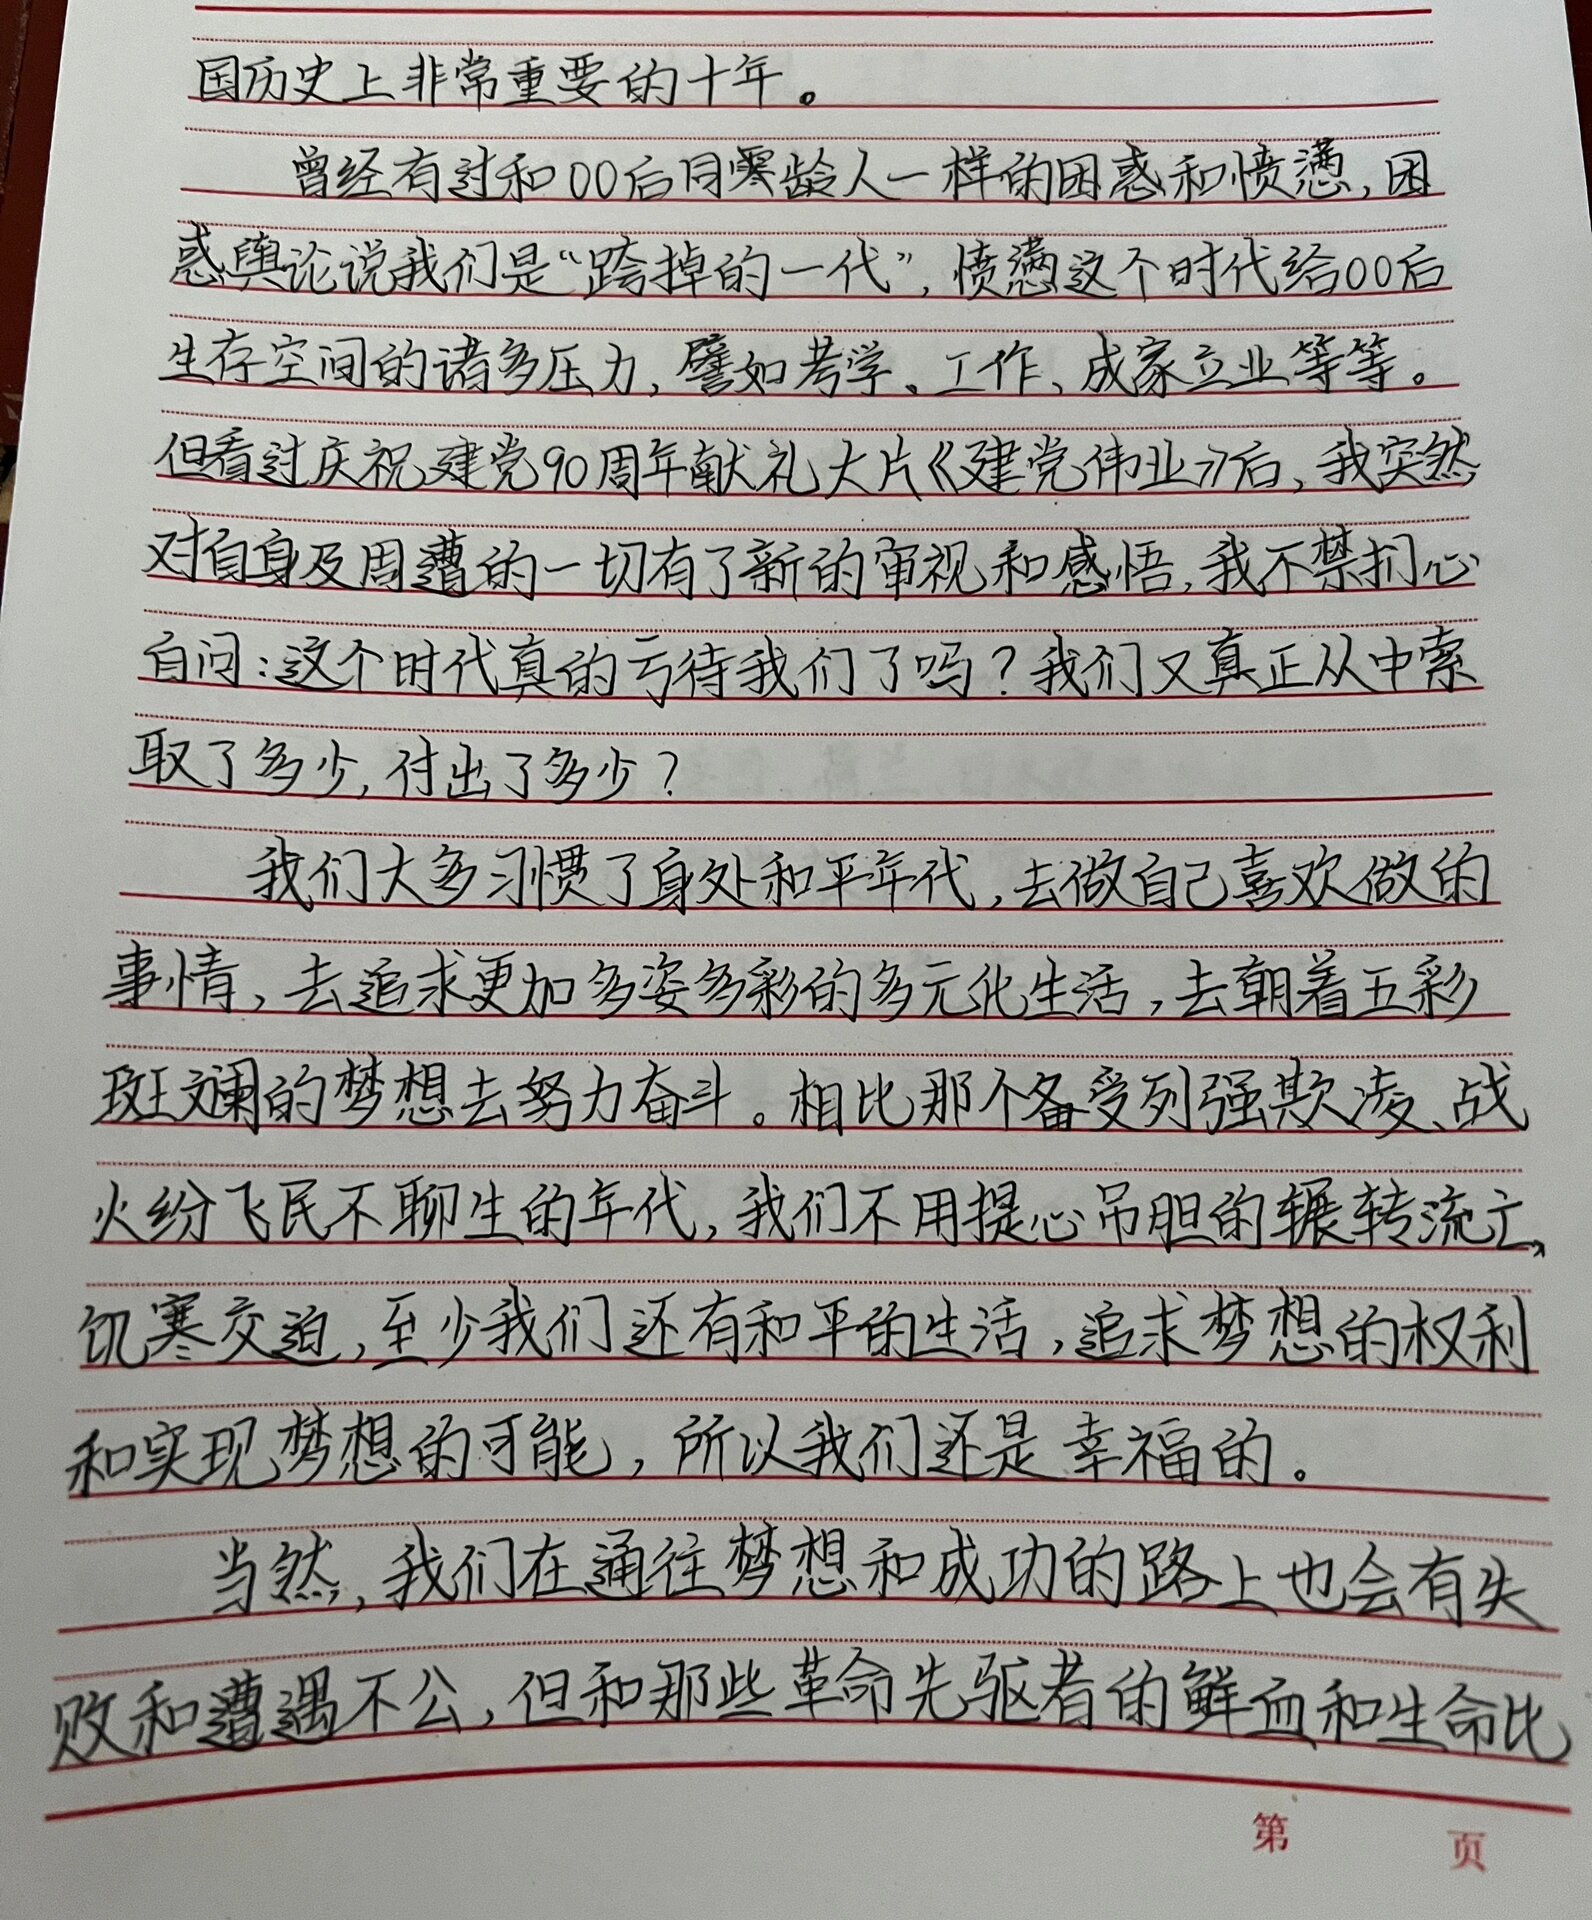 国历史上非常重要的十年。
曾经有过和00后同龄人一样的困惑和愤懑,困
惑舆论说我们是“跨掉的一代”,愤懑这个时代给00后
生存空间的诸多压力,譬如考学、工作、成家立业等等。
但看过庆祝建党90周年献礼大片《建党伟业》后,我突然
对自身及周遭的一切有了新的审视和感悟,我不禁扪心
自问:这个时代真的亏待我们了吗?我们又真正从中索
取了多少,付出了多少?
我们大多习惯了身处和平年代,去做自己喜欢做的
事情,去追求更加多姿多彩的多元化生活,去朝着五彩
斑斓的梦想去努力奋斗。相比那个备受列强欺凌、战
火纷飞民不聊生的年代,我们不用提心吊胆的辗转流亡、
饥寒交迫,至少我们还有和平的生活,追求梦想的权利
和实现梦想的可能,所以我们还是幸福的。
当然,我们在通往梦想和成功的路上也会有失
败和遭遇不公,但和那些革命先驱者的鲜血和生命比
第 页